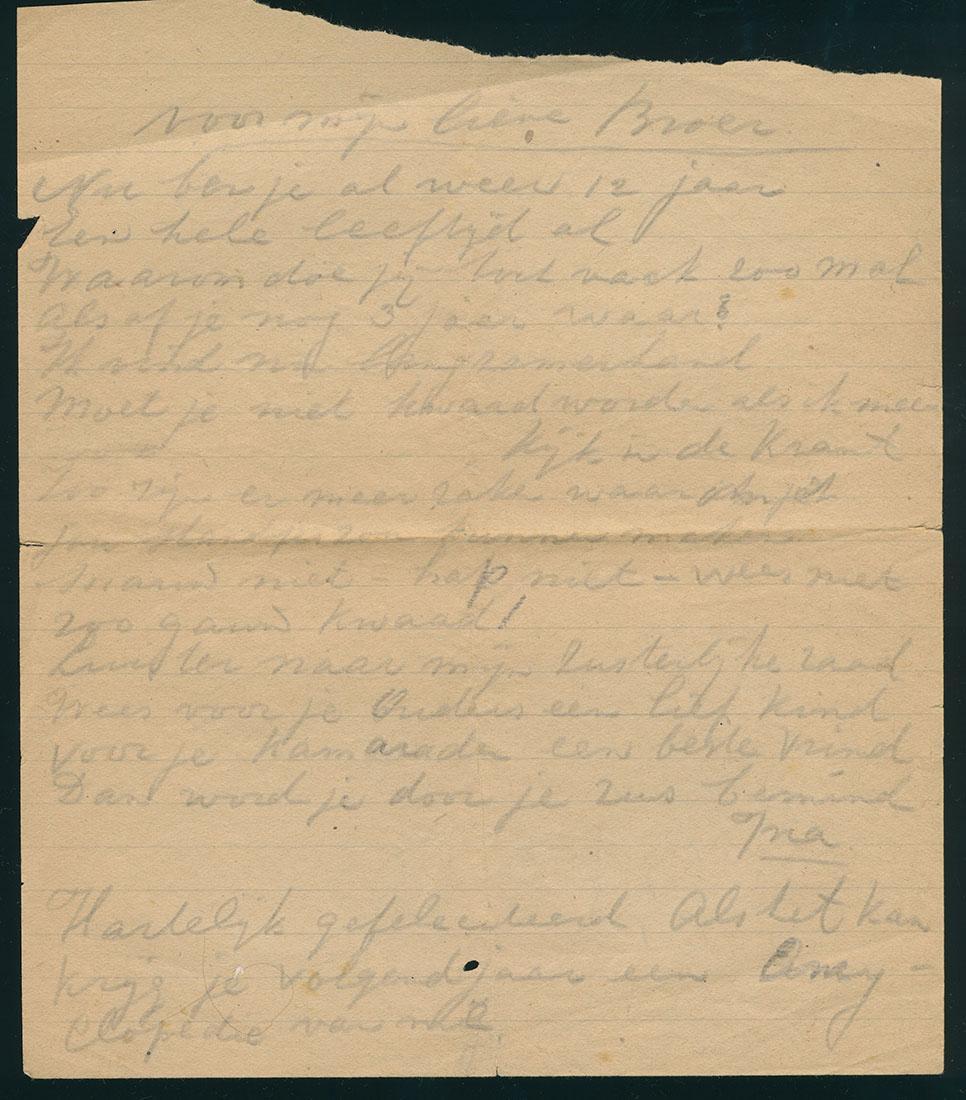 voor mijn lieve Broer
Nu ben je al weer 12 jaar
Een hele leeftijd al
Waarom doe jij toch vaak zoo mal
Als of je nog 3 jaar waar?
Ik vind
Moet je niet kwaad worden als ik mee
kijk in de Krant
Zoo zijn er meer zake waar
kunnen maken
niet - hap niet - wees niet
zoo gauw kwaad!
Luister naar mijn zusterlijke raad
Wees voor je Ouders een lief kind
voor je kamarade een beste vrind
Dan word je door je zus bemind
Ina
Hartelijk gefeliciteerd Als het kan
krijg je volgend jaar een Ency-
clopedie van